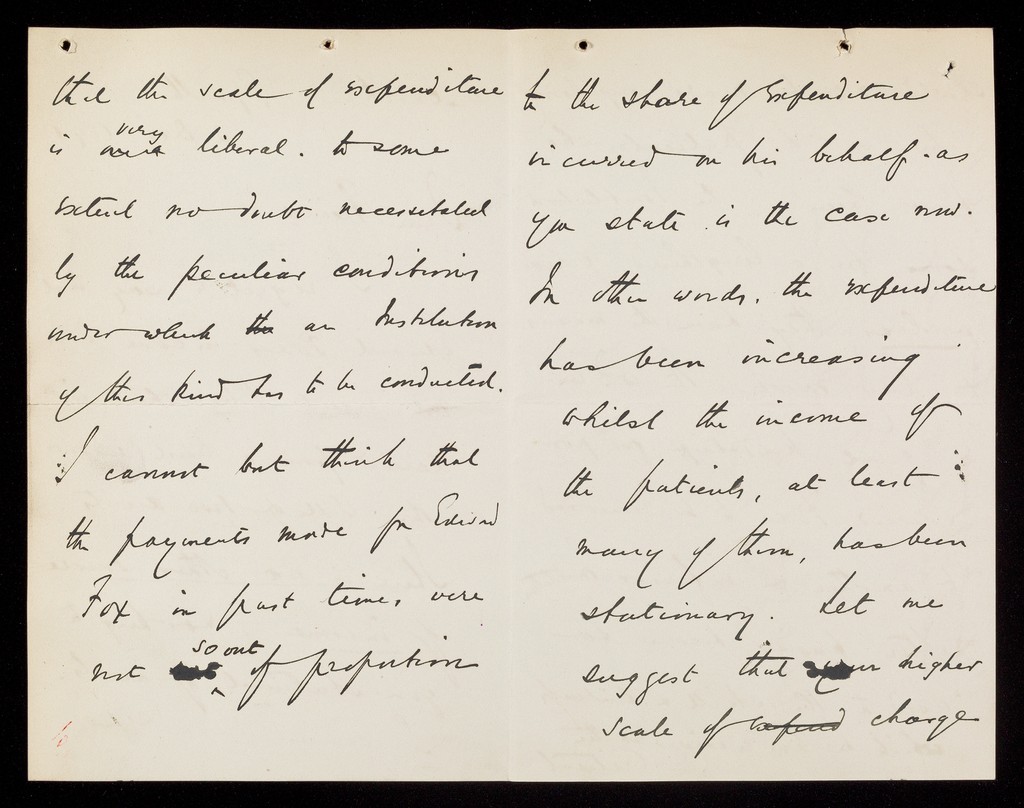 that the scale of expenditure
is very liberal. to some
extent no doubt necessitated
by the peculiar conditions
under which the an Institution
of this kind has to be conducted.
I cannot but think that
the payments made for Edward
Fox in past times were
not so out of proportion
to the share of Expenditure
incurred on his behalf. as
you state is the case now.
In other words, the expenditure
has been increasing
whilst the income of
the patients, at least
many of them, has been
stationary. Let me
suggest that your higher
scale of expend charge